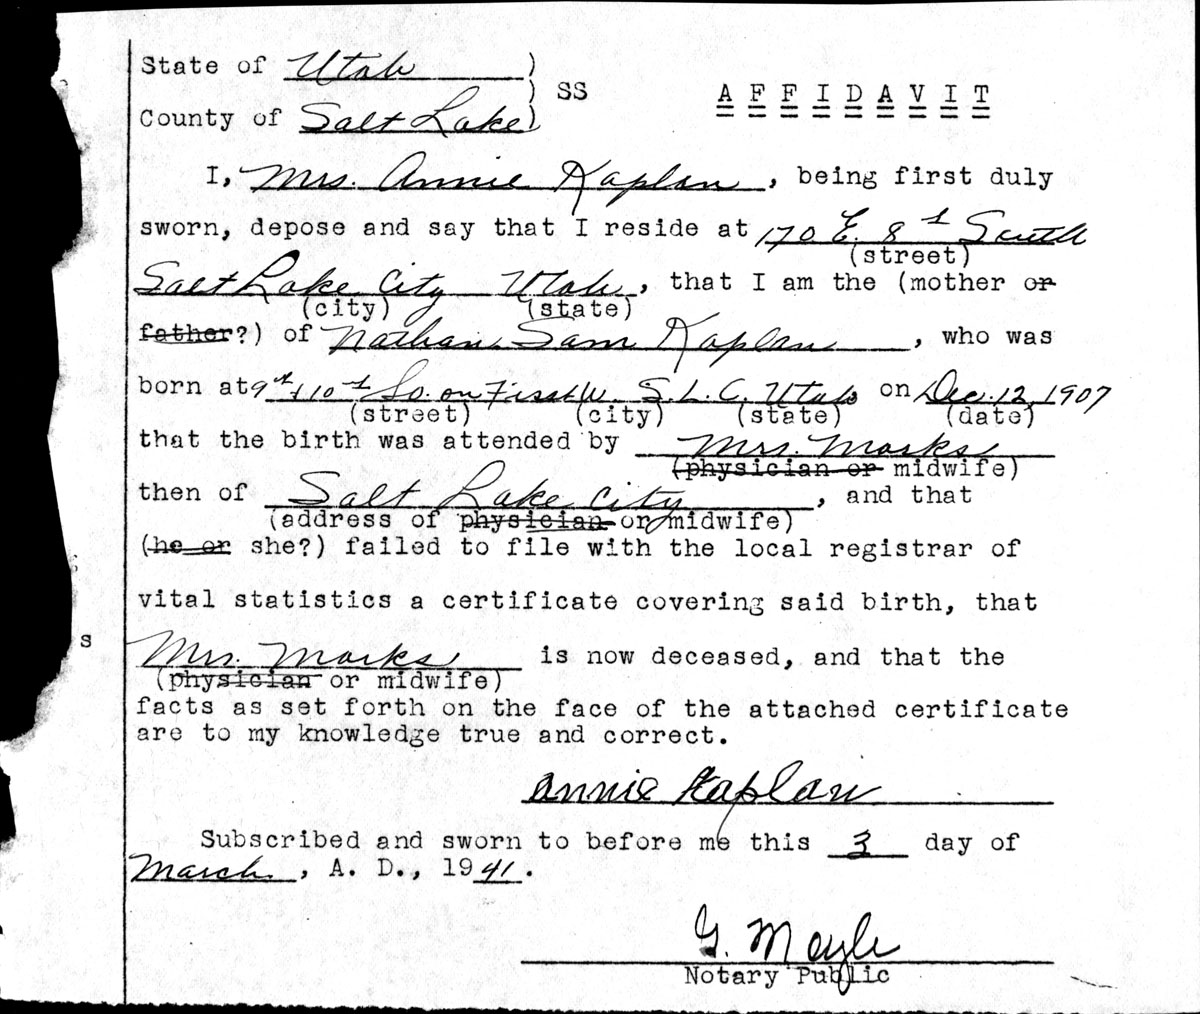 State of Utah )
) SS A F F I D A V I T
County of Salt Lake)
I, Mrs. Annie Kaplan, being first duly
sworn, depose and say that I reside at 170 E. 8th South
(street)
Salt Lake City Utah, that I am the (mother or
(city) (state)
father?) of Nathan Sam Kaplan, who was
born at 9th & 10th So. on First W. S. L. C. Utah on Dec. 12, 1907
(street) (city) (state) (date)
that the birth was attended by Mrs. Marks
(physician or midwife)
then of Salt Lake City, and that
(address of physician or midwife)
(he or she?) failed to file with the local registrar of
vital statistics a certificate covering said birth, that
s
Mrs. Marks is now deceased, and that the
(physician or midwife)
facts as set forth on the face of the attached certificate
are to my knowledge true and correct.
Annie Kaplan
Subscribed and sworn to before me this 3 day of
March, A. D., 1941.
G. Moyle
Notary Public